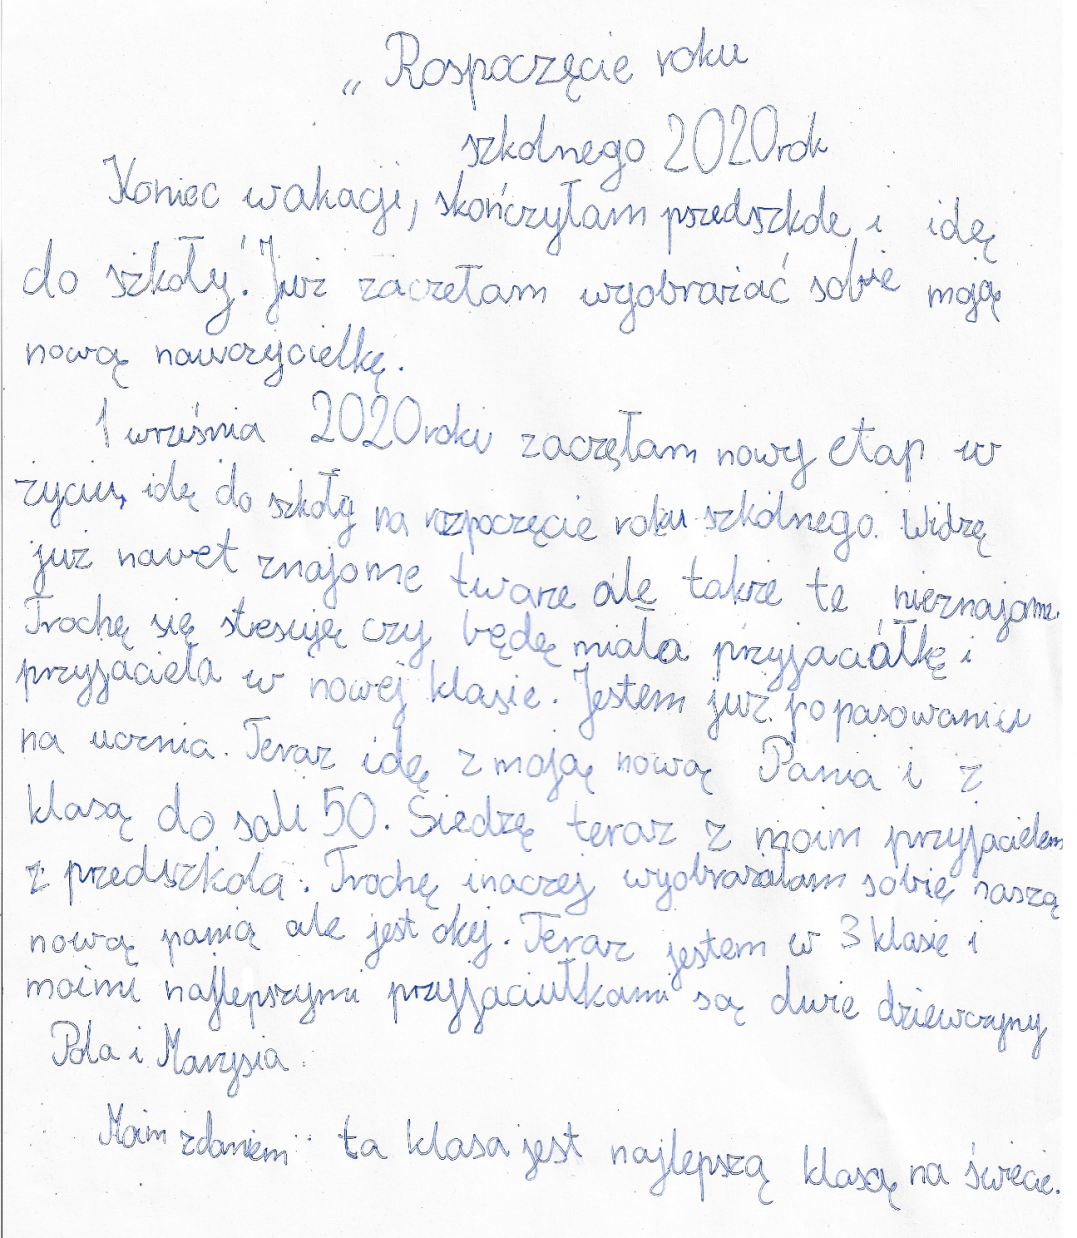 „ Rospoczęcie roku
szkolnego 2020rok
Koniec wakacji, skończyłam przedszkole i idę
do szkoły. Już zaczełam wyobrażać sobie moją
nową nauczycielkę.
1 września 2020roku zaczęłam nowy etap w
życiu, idę do szkoły na rozpoczęcie roku szkolnego. Widzę
już nawet znajome twarze ale także te nieznajome
Trochę się stresuję czy będę miała przyjaciółkę i
przyjaciela w nowej klasie. Jestem już po pasowaniu
na ucznia. Teraz idę z moją nową Pania i z
klasą do sali 50. Siedzę teraz z moim przyjacielem
z przedszkola. Trochę inaczej wyobrażałam sobie naszą
nową panią ale jest okej. Teraz jestem w 3 klasie i
moimi najlepszymi przyjaciułkami są dwie dziewczyny
Pola i Marysia.
Moim zdaniem ta klasa jest najlepszą klasą na świecie.